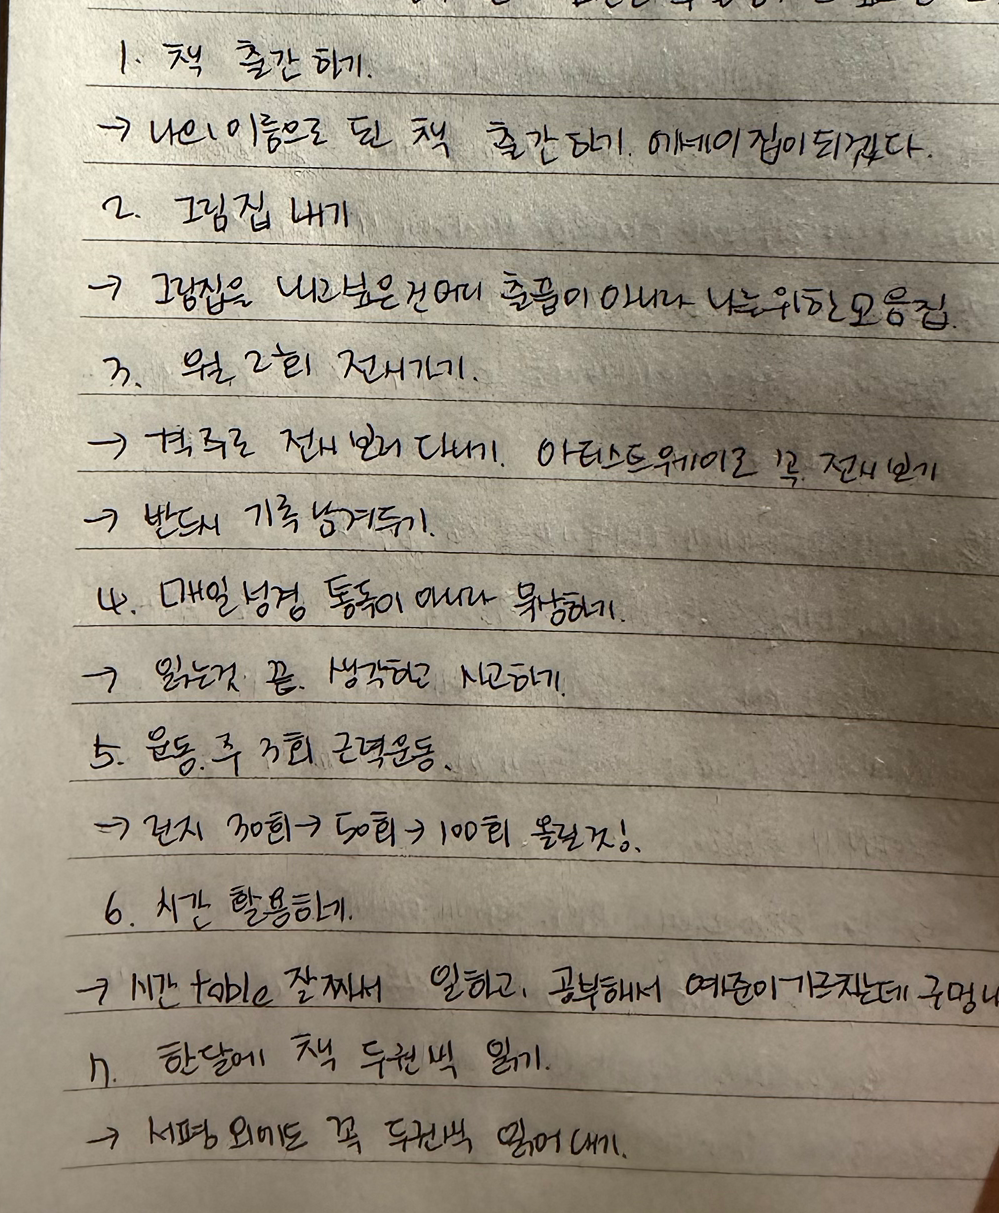 1. 책 출간하기.
→ 나의 이름으로 된 책 출간하기. 에세이집이 되겠다.
2. 그림집 내기
→ 그림집을 내고 싶은건 머 출품이 아니라 나를 위한 모음집.
3. 월 2회 전시가기.
→ 격주로 전시 보러 다니기. 아티스트웨이로 꼭 전시 보기
→ 반드시 기록 남겨두기.
4. 매일 성경 통독이 아니라 묵상하기.
→ 읽는것 끝. 생각하고 사고하기.
5. 운동. 주 3회 근력운동.
→ 런지 30회→50회→100회 올릴것!.
6. 시간 활용하기.
→ 시간 table 잘짜서 일하고, 공부해서 예준이 가르치는데 구멍
7. 한달에 책 두권씩 읽기.
→ 서평 외에도 꼭 두권씩 읽어 내기.